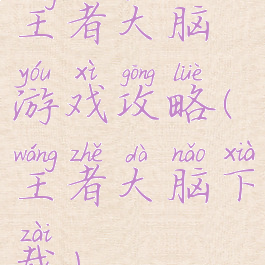 王者大脑
yóu xì gōng lüè
游戏攻略(
wáng zhě dà nǎo xià
王者大脑下
zài
载)